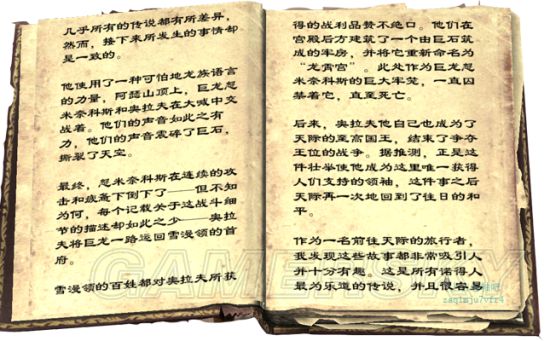 几乎所有的传说都有所差异，
然而，接下来所发生的事情却
是一致的。
他使用了一种可怕地龙族语言
的力量，阿瑟山顶上，巨龙忽
米奈科斯和奥拉夫在大喊中交
战着。他们的声音如此之有
力，他们的声音震碎了巨石，
撕裂了天空。
最终，忽米奈科斯在连续的攻
击和疲惫下倒下了——但不知
为何，每个记载关于这战斗细
节的描述却如此之少——奥拉
夫将巨龙一路运回雪漫领的首
府。
雪漫领的百姓都对奥拉夫所获
得的战利品赞不绝口。他们在
宫殿后方建筑了一个由巨石筑
成的牢房，并将它重新命名为
“龙霄宫”。此处作为巨龙忽
米奈科斯的巨大牢笼，一直囚
禁着它，直至死亡。
后来，奥拉夫他自己也成为了
天际的至高国王，结束了争夺
王位的战争。据推测，正是这
件壮举使他成为这里唯一获得
人们支持的领袖，这件事之后
天际再一次地回到了往日的和
平。
作为一名前往天际的旅行者，
我发现这些故事都非常吸引人
并十分有趣。这是所有诺得人
最为乐道的传说，并且很容易
GAMERSKY
zaq1mju7vfr4